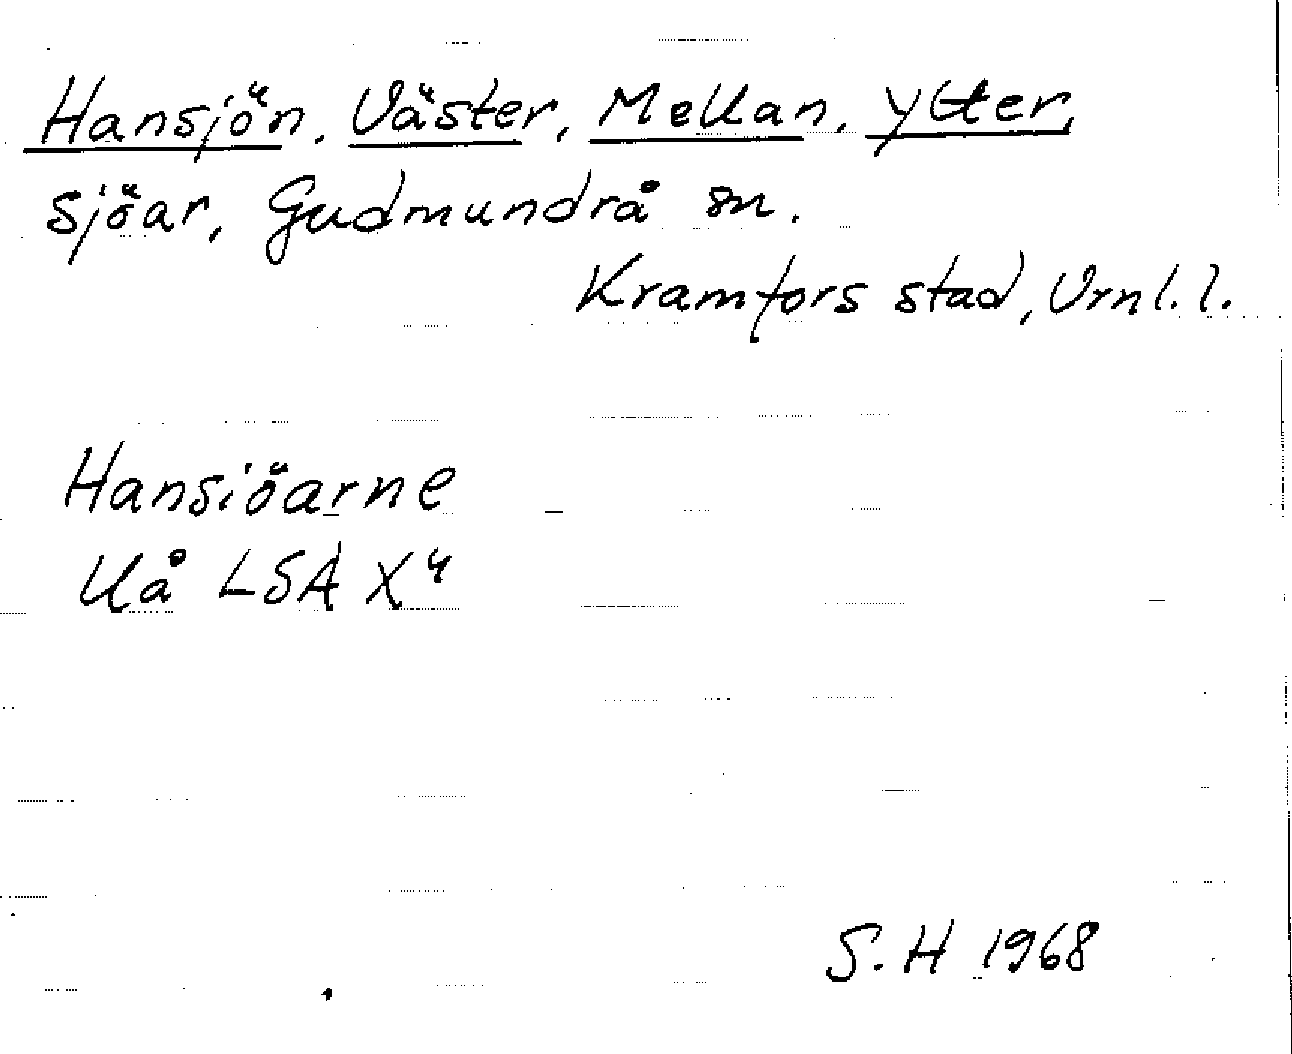 Hansjön, Väster, Mellan, Ytter,
sjöar, Gudmundrå sn.
Kramfors stad, Vrnl. l.
Hansiöarne
Uå LSA X4
S. H 1968